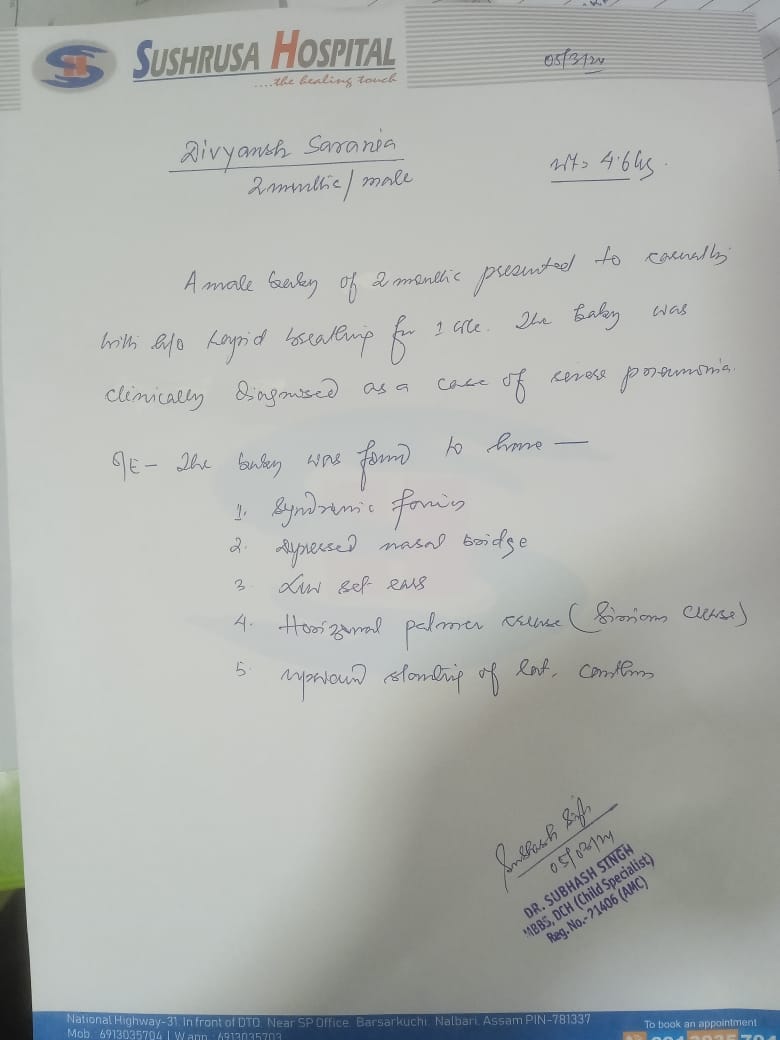 SUSHRUSA HOSPITAL
....the healing touch
05/3/24
Divyansh Sarania
2 months / male
wt= 4.6 kg.
A male baby of 2 months presented to casualty
with h/o rapid breathing for 1 The baby was
clinically diagnosed as a case of severe pneumonia.
O/E - The baby was found to have —
1. Syndromic
2. Depressed nasal bridge
3. Low set ears
4. Horizontal palmer crease (Simians crease)
5. upward slanting of lat. canthus
Subhash Singh
05/03/24
DR. SUBHASH SINGH
MBBS, DCH (Child Specialist)
Reg. No.-21406 (AMC)
National Highway-31, In front of DTO, Near SP Office, Barsarkuchi, Nalbari, Assam PIN-781337
To book an appointment
Mob.: 6913035704 | W.app.: 6913035703